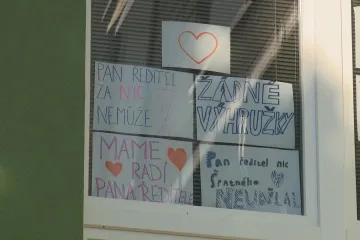 PAN ŘEDITEL
ZA NIC
NEMŮŽE
ŽÁDNÉ
VÝHRUŽKY
MÁME
RÁDI
PANA ŘEDITELE
Pan ředitel nic
Špatného
NEUDĚLAL